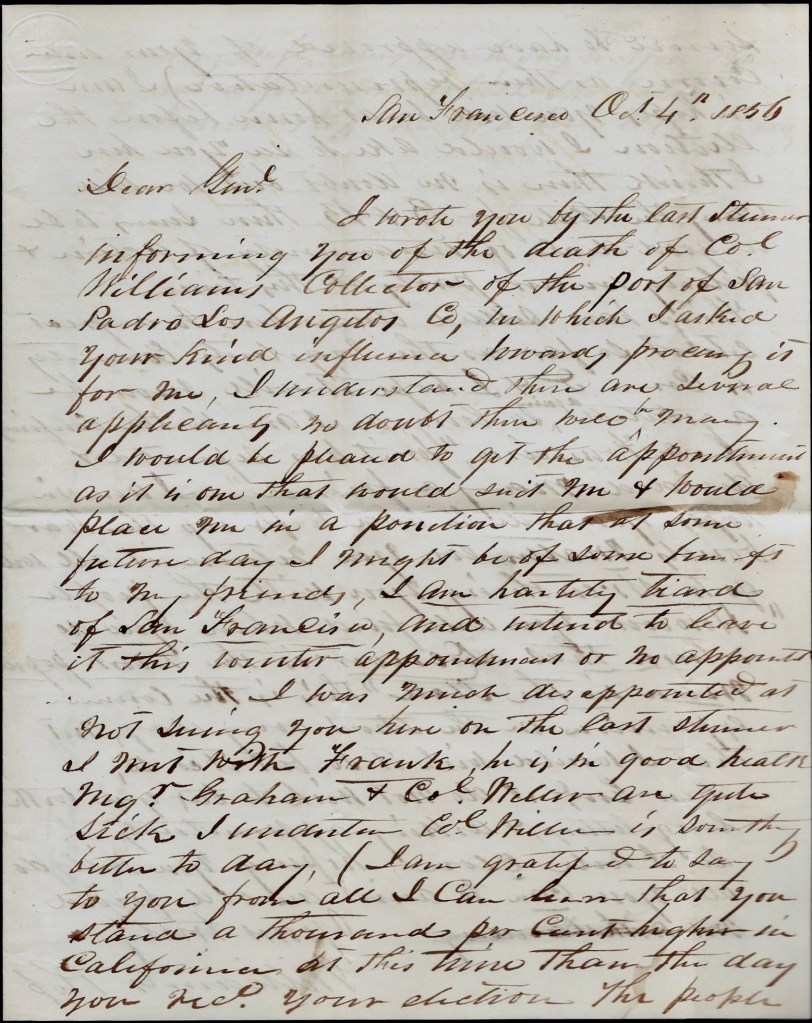 San Francisco Oct 4th 1856
Dear Genl
I wrote you by the last Steamer
informing you of the death of Col
Williams Collector of the port of San
Padro Los Angelos Co, in which I asked
your kind influence towards procing it
for me, I understand there are several
applicants no doubt there will be many.
I would be pleased to get the appointment
as it is one that would suit me & would
place me in a position that at some
future day I might be of some benifit
to my friends, I am hartily tiard
of San Francisco, and intend to leave
it this winter appointment or no appoint
I was much disappointed at
not seeing you here on the last steamer
I met with Frank, he is in good health
Mgr Graham & Col. Weller are quite
sick I understan Col Weller is something
better to day, (I am gratified to say
to you from all I can learn that you
stand a thousand per Cent higher in
California at this time than the day
you recd. your election The people